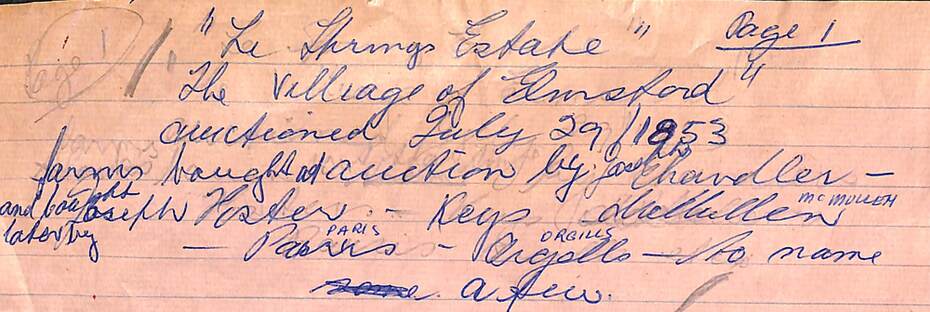 Page 1
"Le Springs Estate" Page 1
"The Villiage of Elmsford"
auctioned July 29/1853
farms bought at auction by Joseph Chandler –
and bought Joseph Foster – Keys McMullen McMULLEN
later by
PARIS ORGILLS
– Parris – Orgills – No name
some a few.